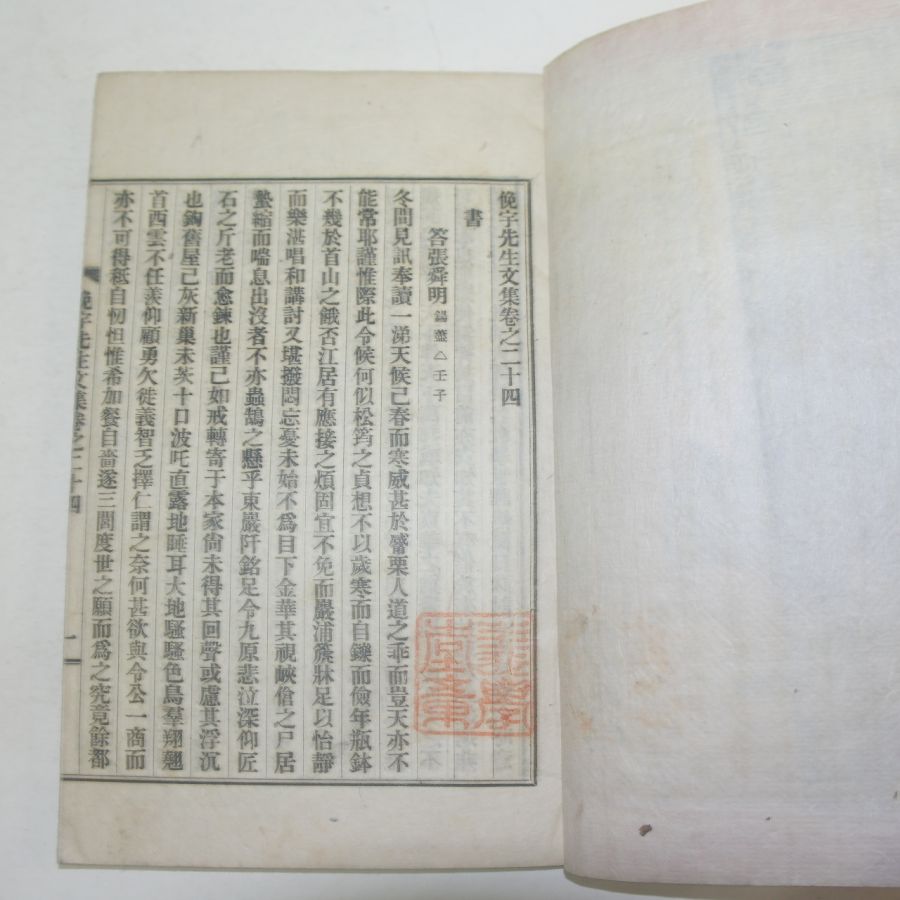 俛宇先生文集卷之二十四
書
答張舜明 錫蓋 △ 壬子
冬間見訊奉讀一涕天候已春而寒威甚於觱栗人道之乖而豈天亦不
能常耶謹惟際此令候何似松筠之貞想不以歲寒而自鑠而儉年瓶鉢
不幾於首山之餓否江居有應接之煩固宜不免而巖浦簇牀足以怡靜
而樂湛唱和講討又堪撥悶忘憂未始不爲目下金華其視峽傖之尸居
蟄縮而喘息出沒者不亦蟲鵠之懸乎東巖阡銘足令九原悲泣深仰匠
石之斤老而愈鍊也謹已如戒轉寄于本家尙未得其回聲或慮其浮沉
也鈎舊屋已灰新巢未茨十口波吒直露地睡耳大地騷騷色鳥羣翔翹
首西雲不任羨仰顧勇欠徙義智乏擇仁謂之奈何甚欲與令公一商而
亦不可得秪自忉怛惟希加餐自嗇遂三閭度世之願而爲之究竟餘都
俛宇先生文集卷之二十四
一